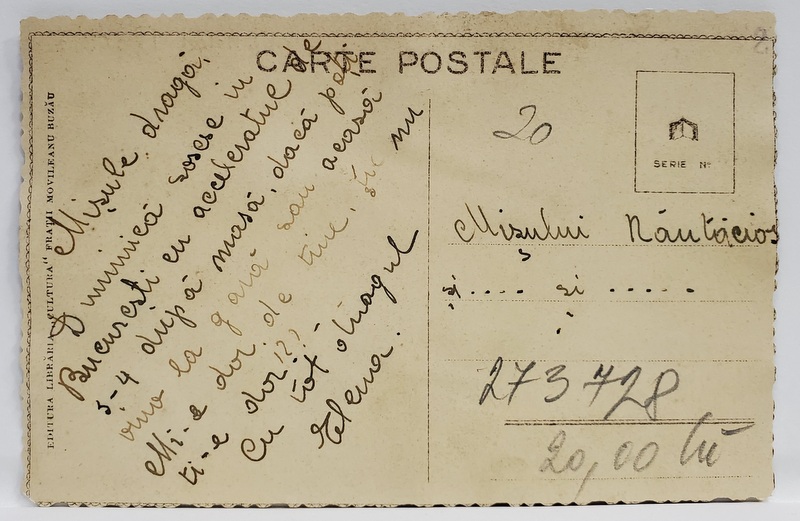 CARTE POSTALE
EDITURA LIBRARIA „CULTURA" FRAȚII MOVILEANU BUZĂU
Mișule dragă,
Duminică sosesc în
București cu acceleratul de
3-4 după masă, dacă poți
vino la gară sau acasă
Mi-e dor de tine, ție nu
ți-e dor!?,
Cu tot dragul
Elena.
20
SERIE No
Mișului Năutăcios
și .... și .....
273728
20,00 lei